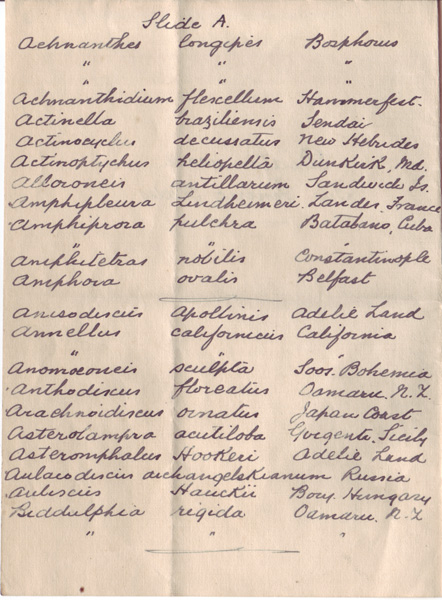 Slide A.
Achnanthes longipes Bosphorus
" " "
Achnanthidium flexellum Hammerfest.
Actinella braziliensis Sendai
Actinocyclus decussatus New Hebrides
Actinoptychus heliopelta Dunkirk, Md.
Alloioneis antillarum Sandwich Is.
Amphipleura Lindheimeri. Landes, France
Amphiprora pulchra Batabano, Cuba
" " "
Amphitetras nobilis Constantinople
Amphora ovalis Belfast
Anisodiscus Apollinis Adelie Land
Annellus californicus California
" " "
Anomoeoneis sculpta Soos. Bohemia
Anthodiscus floreatus Oamaru. N.Z
Arachnoidiscus ornatus Japan Coast
Asterolampra acutiloba Gergente. Sicily
Asteromphalus Hookeri Adelie Land
Aulacodiscus archangelskianum Russia
Auliscus Hauckii Bory. Hungary
Biddulphia rigida Oamaru. N.Z
" " "